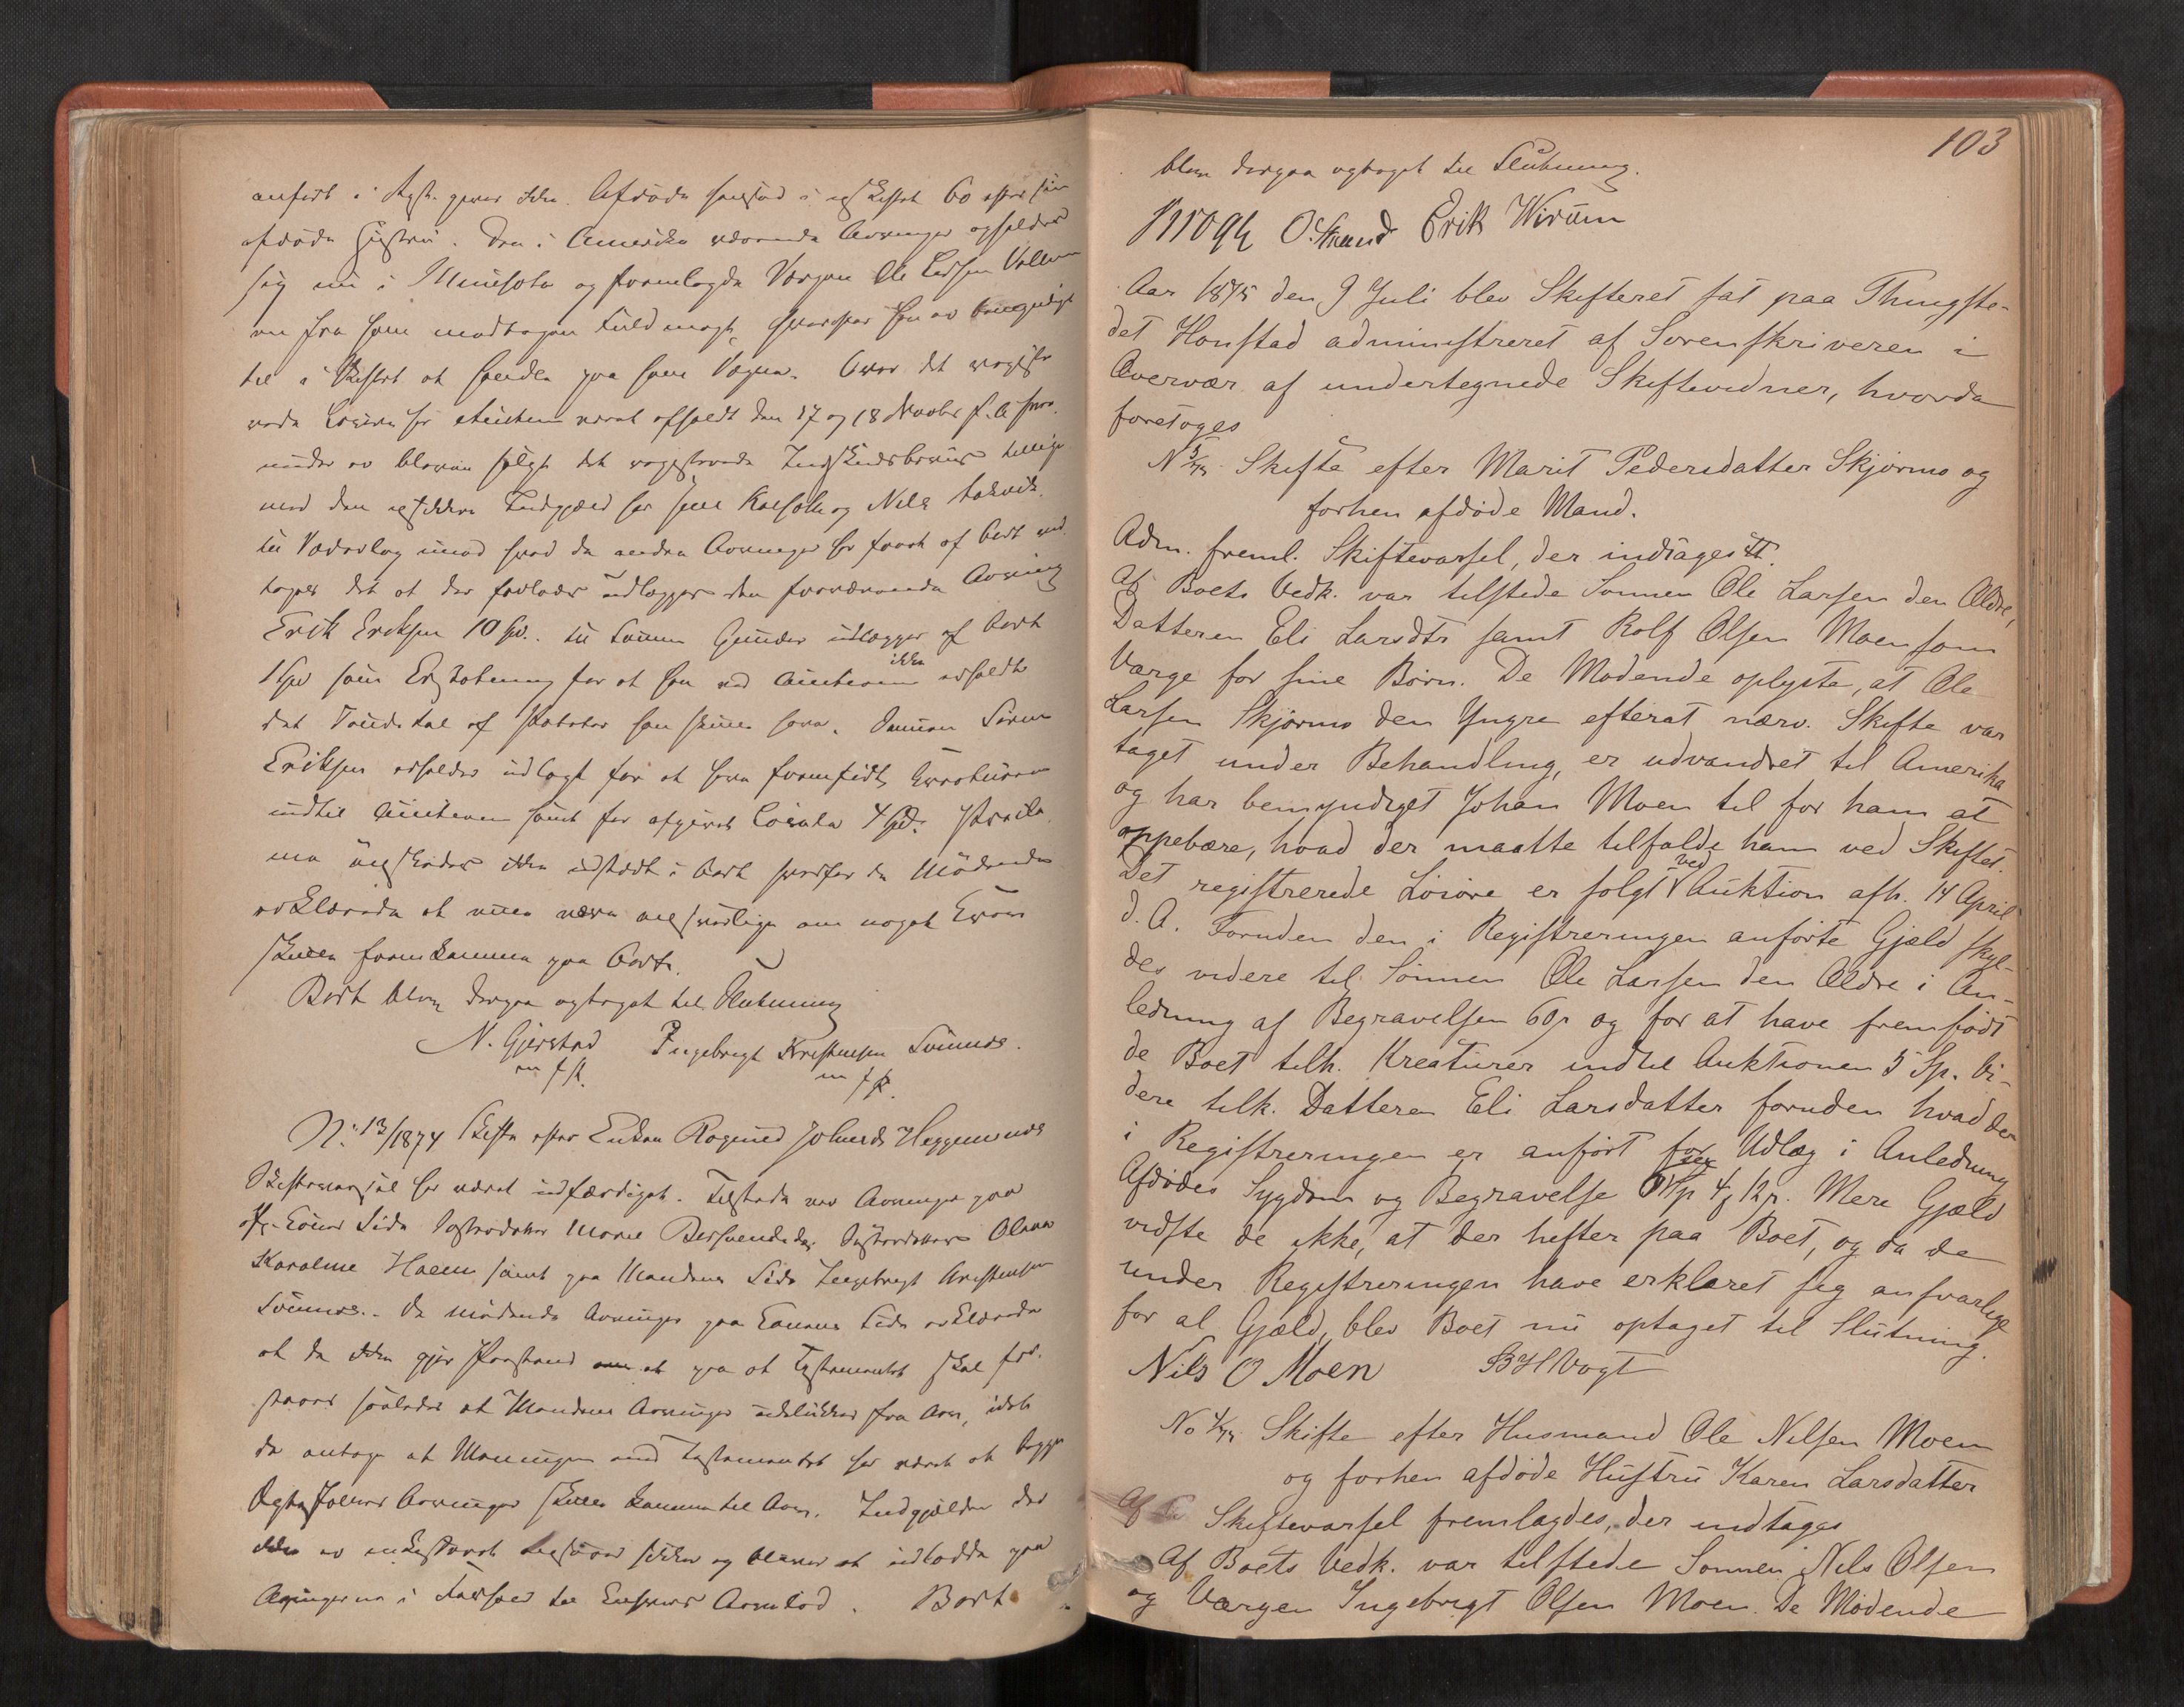 anført i Reg. gives ikke. Afdøde hensad i uskiftet Bo efter sin
afdøde Hustru. Den i Amerika værende Arvinger opholder
sig nu i Minesota og fremlagde Værgen Ole Larsen
en fra ham modtagen Fuldmagt, hvorefter han er bemyndiget
til i Skiftet at handle paa hans Vegne. Over det registre-
rede Løsøre har Auktion været afholdt den 17 og 18 Novbr f. A. hvor-
under er bleven solgt det registrerede
med den usikkre Indgjæld hos Jens og Nils
til Vederlag imod hvad de andre Arvinger har faaet af Boet ved-
toges det at der forlods udlægges den fraværende Arving
Erik Eriksen 10 Spd. til Sønnen Gunder udlægges af Boet
1 Spd som Erstatning for at han ved Auktionen ikke erholdt
det Tøndetal af Poteter han skulde have. Sønnen Søren
Eriksen erholder udlagt for at have fremfødt Kreaturene
indtil Auktionen samt for afgivet Lokale 4 Spd.
ma ønskedes ikke indkaldt i Boet hvorfor de Mødende
erklærede at ville være ansvarlige om noget Krav
skulde fremkomme paa Boet.
Boet blev derpaa optaget til Slutning
N. Gjerstad Ingebrigt Kristensen Svinnes.
m f P. m f P.
No 13/1874 Skifte efter Enken Ragnild Johnsd. Heggemsnes
Skiftevarsel har været udfærdiget. Tilstede var Arvinger paa
Afd. Kones Side Søsterdatter Marie Søsterdatter Olava
Karoline Haem samt paa Mandens Side Ingebrigt Kristensen
Svinnes. De mødende Arvinger paa Konens Side erklærede
at de ikke gjør Paastand paa at Testamentet skal for-
staaes saaledes at Mandens Arvinger udelukkes fra Arv, idet
de antage at Meningen med Testamentet har været at begge
Ægtefolkenes Arvinger skulde komme til Arv. Indgjælden der
ikke er inkasseret ansees sikker og bliver at udlodde paa
Arvingerne i Forhold til Enhvers Arvelod. Boet
103
blev derpaa optaget til Slutning.
O. Strand Erik Wirum
Aar 1875 den 9 Juli blev Skifteret sat paa Thingste-
det Honstad administreret af Sorenskriveren i
Overvær af undertegnede Skiftevidner, hvorda
foretoges
N 5/75. Skifte efter Marit Pedersdatter Skjørmo og
forhen afdøde Mand.
Adm. freml. Skiftevarsel, der indtages tt.
Af Boets Vedk. var tilstede Sønnen Ole Larsen den Ældre,
Datteren Eli Larsdtr samt Rolf Olsen Moen som
Værge for sine Børn. De Mødende oplyste, at Ole
Larsen Skjørmo den Yngre efterat nærv. Skifte var
taget under Behandling, er udvandret til Amerika
og har bemyndiget Johan Moen til for ham at
oppebære, hvad der maatte tilfalde ham ved Skiftet.
Det registrerede Løsøre er solgt ved Auktion afh. 14 April
d. A. Foruden den i Registreringen anførte Gjæld skyl-
des videre til Sønnen Ole Larsen den Ældre i An-
ledning af Begravelsen 60 s og for at have fremfødt
de Boet tilh. Kreaturer indtil Auktionen 5 Sp. Vi-
dere tilk. Datteren Eli Larsdatter foruden hvad der
i Registreringen er anført for Udlæg i Anledning
Afdødes Sygdom og Begravelse Sp 4 12 s. Mere Gjæld
vidste de ikke, at der hefter paa Boet, og da de
under Registreringen have erklæret sig ansvarlige
for al Gjæld, blev Boet nu optaget til Slutning.
Nils O Moen BHVogt
No 4/75 Skifte efter Husmand Ole Nilsen Moen
og forhen afdøde Hustru Karen Larsdatter
Skiftevarsel fremlagdes, der indtages
Af Boets Vedk. var tilstede Sønnen Nils Olsen
og Værgen Ingebrigt Olsen Moen. De Mødende